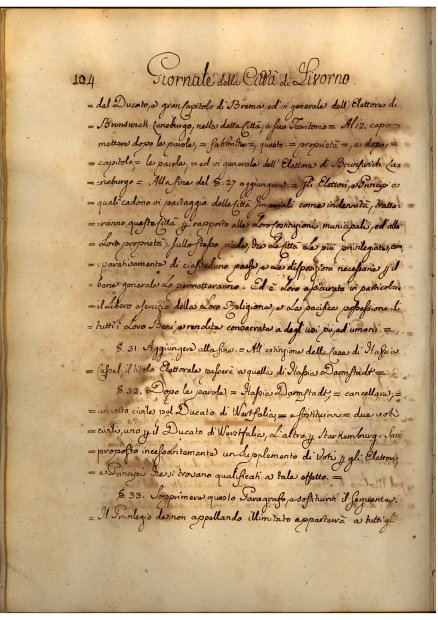 104 Giornale della Città di Livorno.
= dal Ducato, e gran Capitolo di Brema, ed in generale dell'Elettore di
= Brunswich Luneburgo, nella detta Città, e suo Territorio = Al 12. capo
= mettere dopo le parole, = fabbriche =, queste: = proprietà =, e dopo, =
= capitolo, = le parole, = ed in generale dell'Elettore di Brunswich Lu=
= neburgo = Alla fine del §. 27 aggiungere: = Gli Elettori, e Principi a
= quali cadono in partaggio delle Città Imperiali come indennità, tratte=
= ranno queste Città p rapporto alle Loro costituzioni municipali, ed alle
= Loro proprietà, sullo stesso piede, che le Città le più privilegiate, com
= parativamente di ciascheduno paese, e le disposizioni necessarie p il
= bene generale lo permetteranno. Ed è Loro assicurato in particolare
= il libero esercizio della Loro Religione, e la pacifica possessione di
= tutti i Loro Beni, e rendite consacrate a degli usi pii, ed umani. =
§. 31. Aggiungere alla fine. = All'estinzione della Casa di Hassia
= Cassel, il titolo Elettorale passerà a quella di Hassia Darmstadt =
§. 32. Dopo le parole = Hassia Darmstadt, = cancellare, =
= un voto curile pel Ducato di Westfalia, = e sostituirvi = due voti
= curili, uno p il Ducato di Westfalia, l'altro p Starkemburg. Sarà
= proposto incessantemente un supplemento di Voti p gli Elettori,
= e Principi che si trovano qualificati a tale effetto. =
§. 33. Sopprimere questo Paragrafo, e sostituirvi il seguente:
= Il Privilegio de non appellando illimitato apparterrà a tutti gli